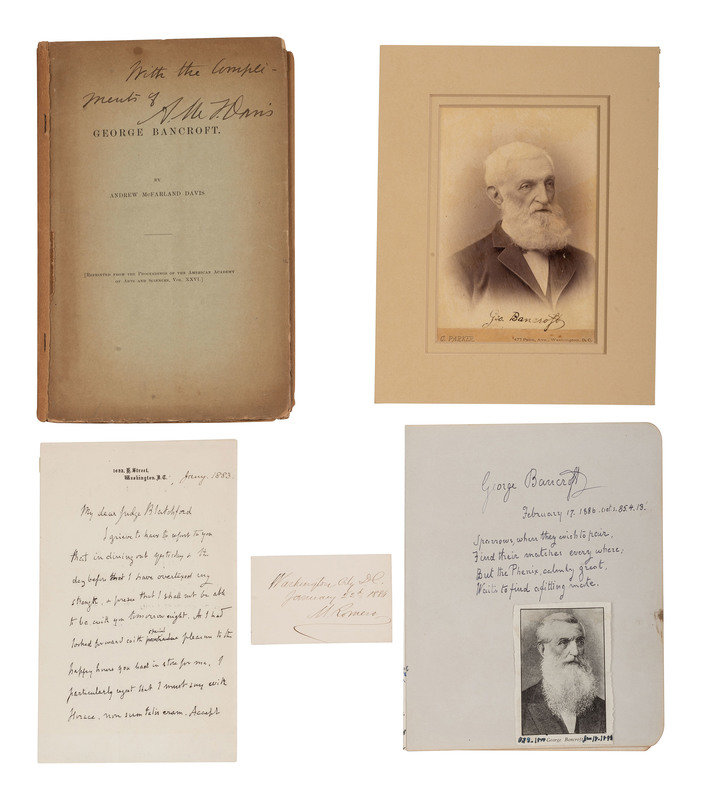 With the Compli-
ments of
A. McF. Davis
GEORGE BANCROFT.
BY
ANDREW McFARLAND DAVIS
[Reprinted from the Proceedings of the American Academy
of Arts and Sciences, Vol. XXVI.]
Geo. Bancroft
C. PARKER
477 Penn. Ave., Washington, D.C.
1623, H Street,
Washington, D.C.
1883
My dear Judge Blatchford
I grieve to have to report to you
that in dining out yesterday & the
day before I have overtaxed my
strength, & perceive that I shall not be able
to be with you tomorrow night. As I had
looked forward with especial pleasure to the
happy hours you had in store for me, I
particularly regret that I must say with
Horace, non sum qualis eram. Accept
Washington City D.C.
January 1886
M. Romero
George Bancroft
February 17. 1886. 85.4.13.
Sparrows, when they wish to pair,
Find their matches every where;
But the Phenix, calmly great,
Waits to find a fitting mate.
George Bancroft